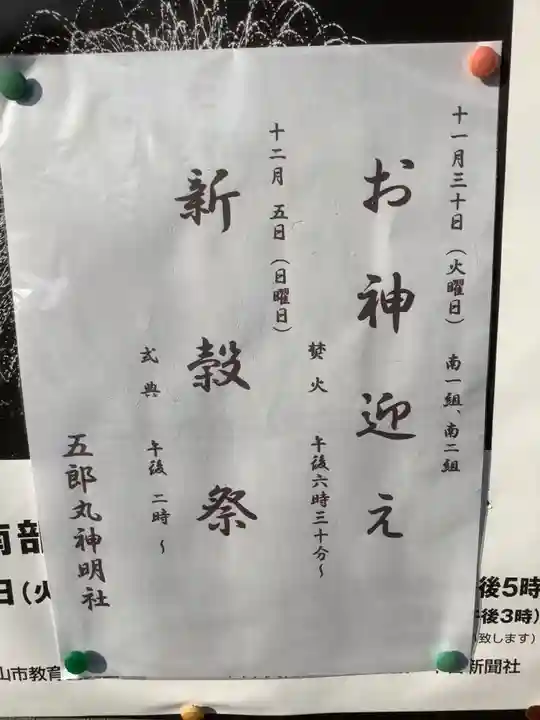 十一月三十日(火曜日) 南一組、南二組
お神迎え
焚火 午後六時三十分〜
十二月 五日(日曜日)
新穀祭
式典 午後 二時 〜
五郎丸神明社
南部
日(火
山市教育
後5時
午後3時)
致します)
新聞社